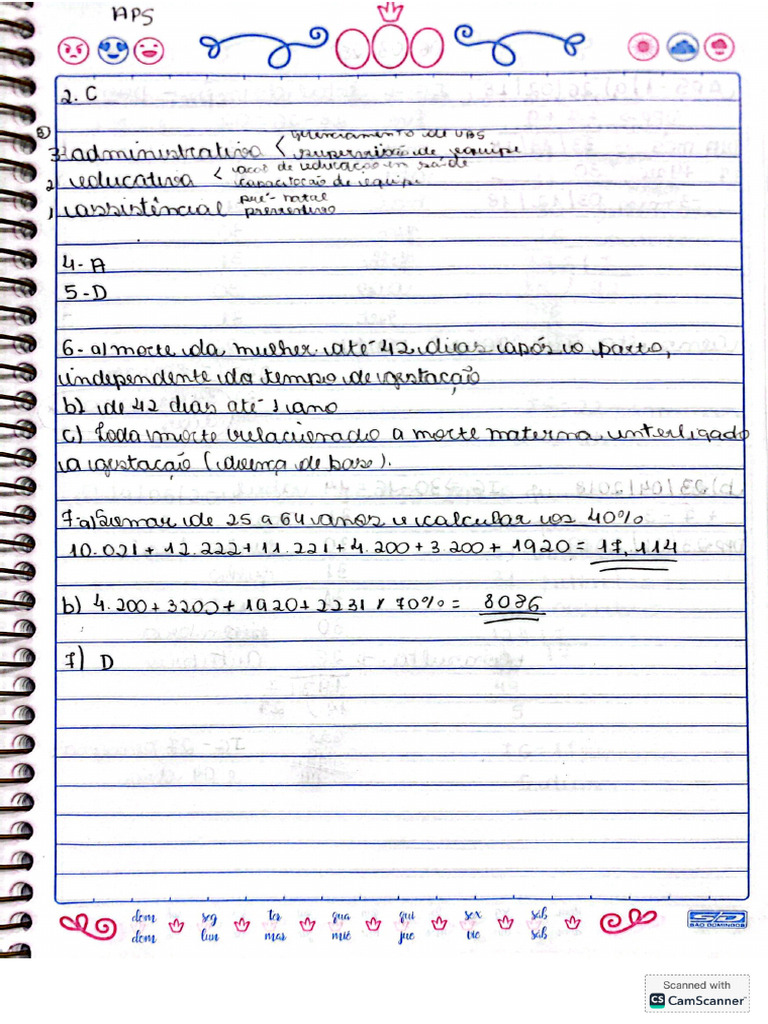 APS
2. C
3 administrativa < gerenciamento de UBS
supervisão de equipe
2 educativa < acot de educação em saúde
capacitação de equipe
1 assistêncial pré-natal
preventivo
4-A
5-D
6- a) morte da mulher até 42 dias após o parto,
independente do tempo de gestação
b) de 42 dias até 1 ano
c) Toda morte relacionado a morte materna interligado
a gestação (doença de base).
7 a) Somar de 25 a 64 anos e calcular os 40%
10.021 + 12.222 + 11.221 + 4.200 + 3.200 + 1920 = 17,114
b) 4.200 + 3200 + 1920 + 2231 x 70% = 8086
7) D
dom seg ter qua qui sex sab
dom lun mar mié jue vie sab
SD
SÃO DOMINGOS
Scanned with
CS CamScanner